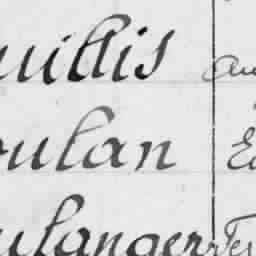 uillis au
oulan E
ulanger Fer